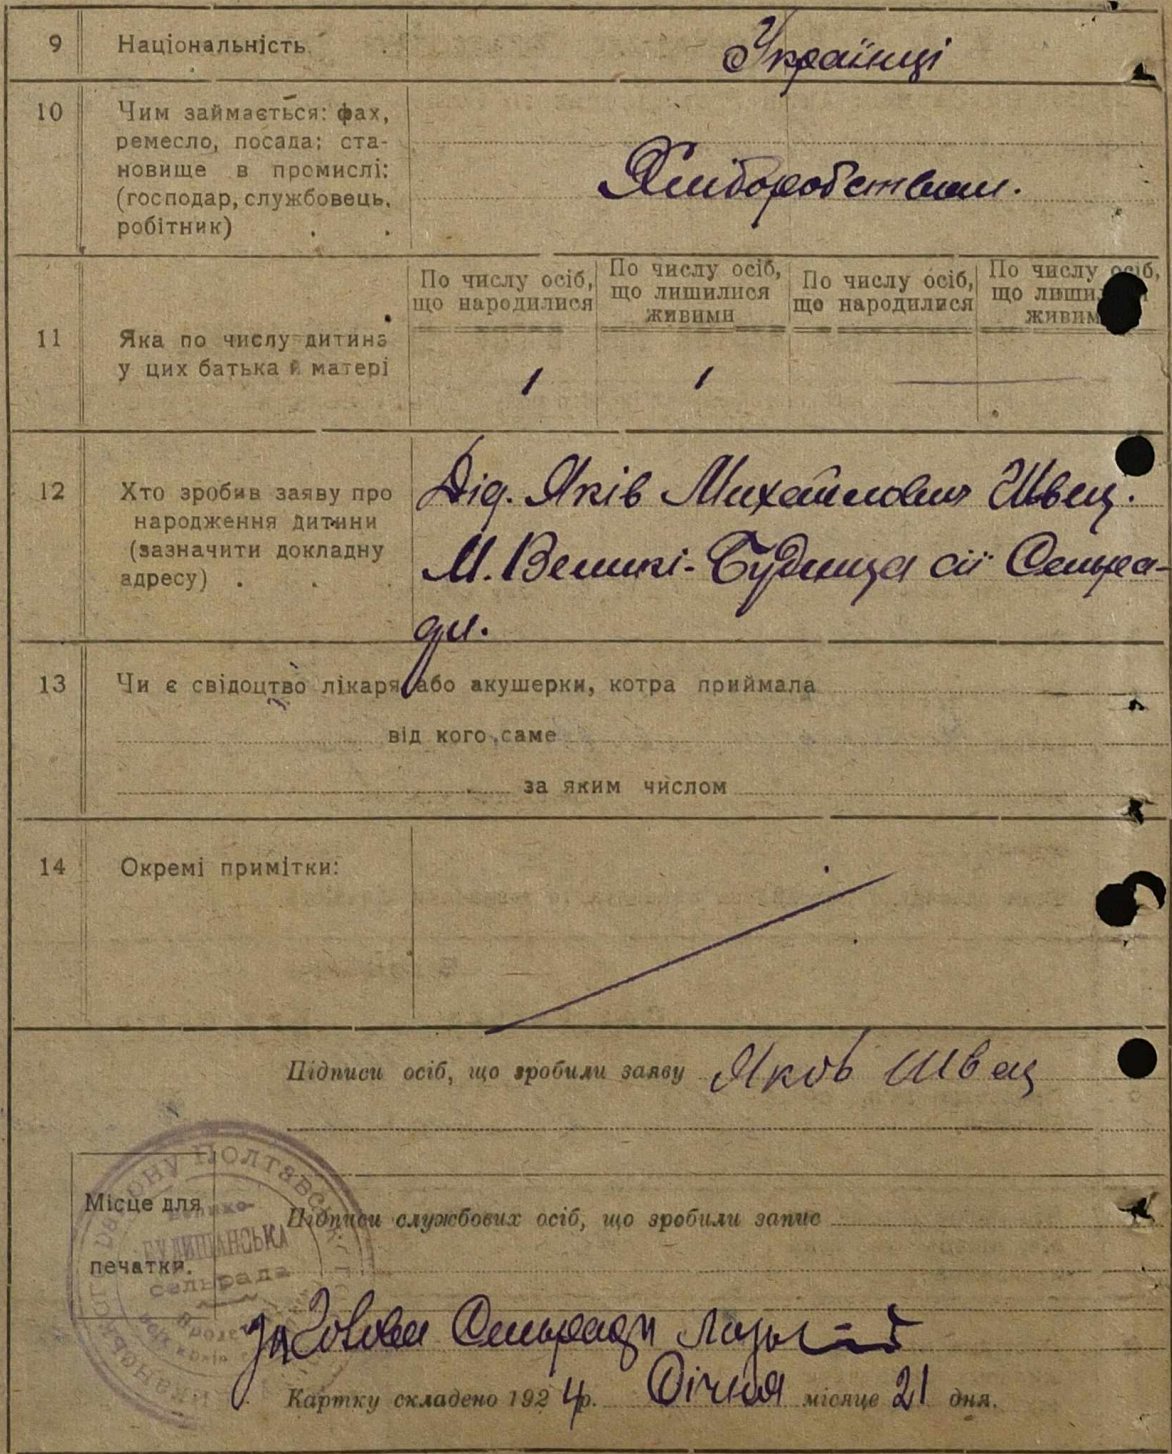 9 Національність Українці
10 Чим займається: фах,
ремесло, посада; ста-
новище в промислі:
(господар, службовець,
робітник) . .
Хліборобством.
По числу осіб, що народилися
По числу осіб, що лишилися живими
По числу осіб, що народилися
По числу осіб, що лишил живим
11 Яка по числу дитина
у цих батька й матері
1 1
12 Хто зробив заяву про
народження дитини
(зазначити докладну
адресу) . . .
Дід. Яків Михайлович Швец.
М. Великі-Будища сії Сельра-
ди.
13 Чи є свідоцтво лікаря або акушерки, котра приймала
від кого саме
за яким числом
14 Окремі примітки:
Підписи осіб, що зробили заяву Яков Швец
Місце для
печатки.
району Полтавськ
Велико-
БУДИЩАНСЬКА
сельрада
Підписи службових осіб, що зробили запис
За Голови Сельради
Картку складено 1924р. Січня місяце 21 дня.